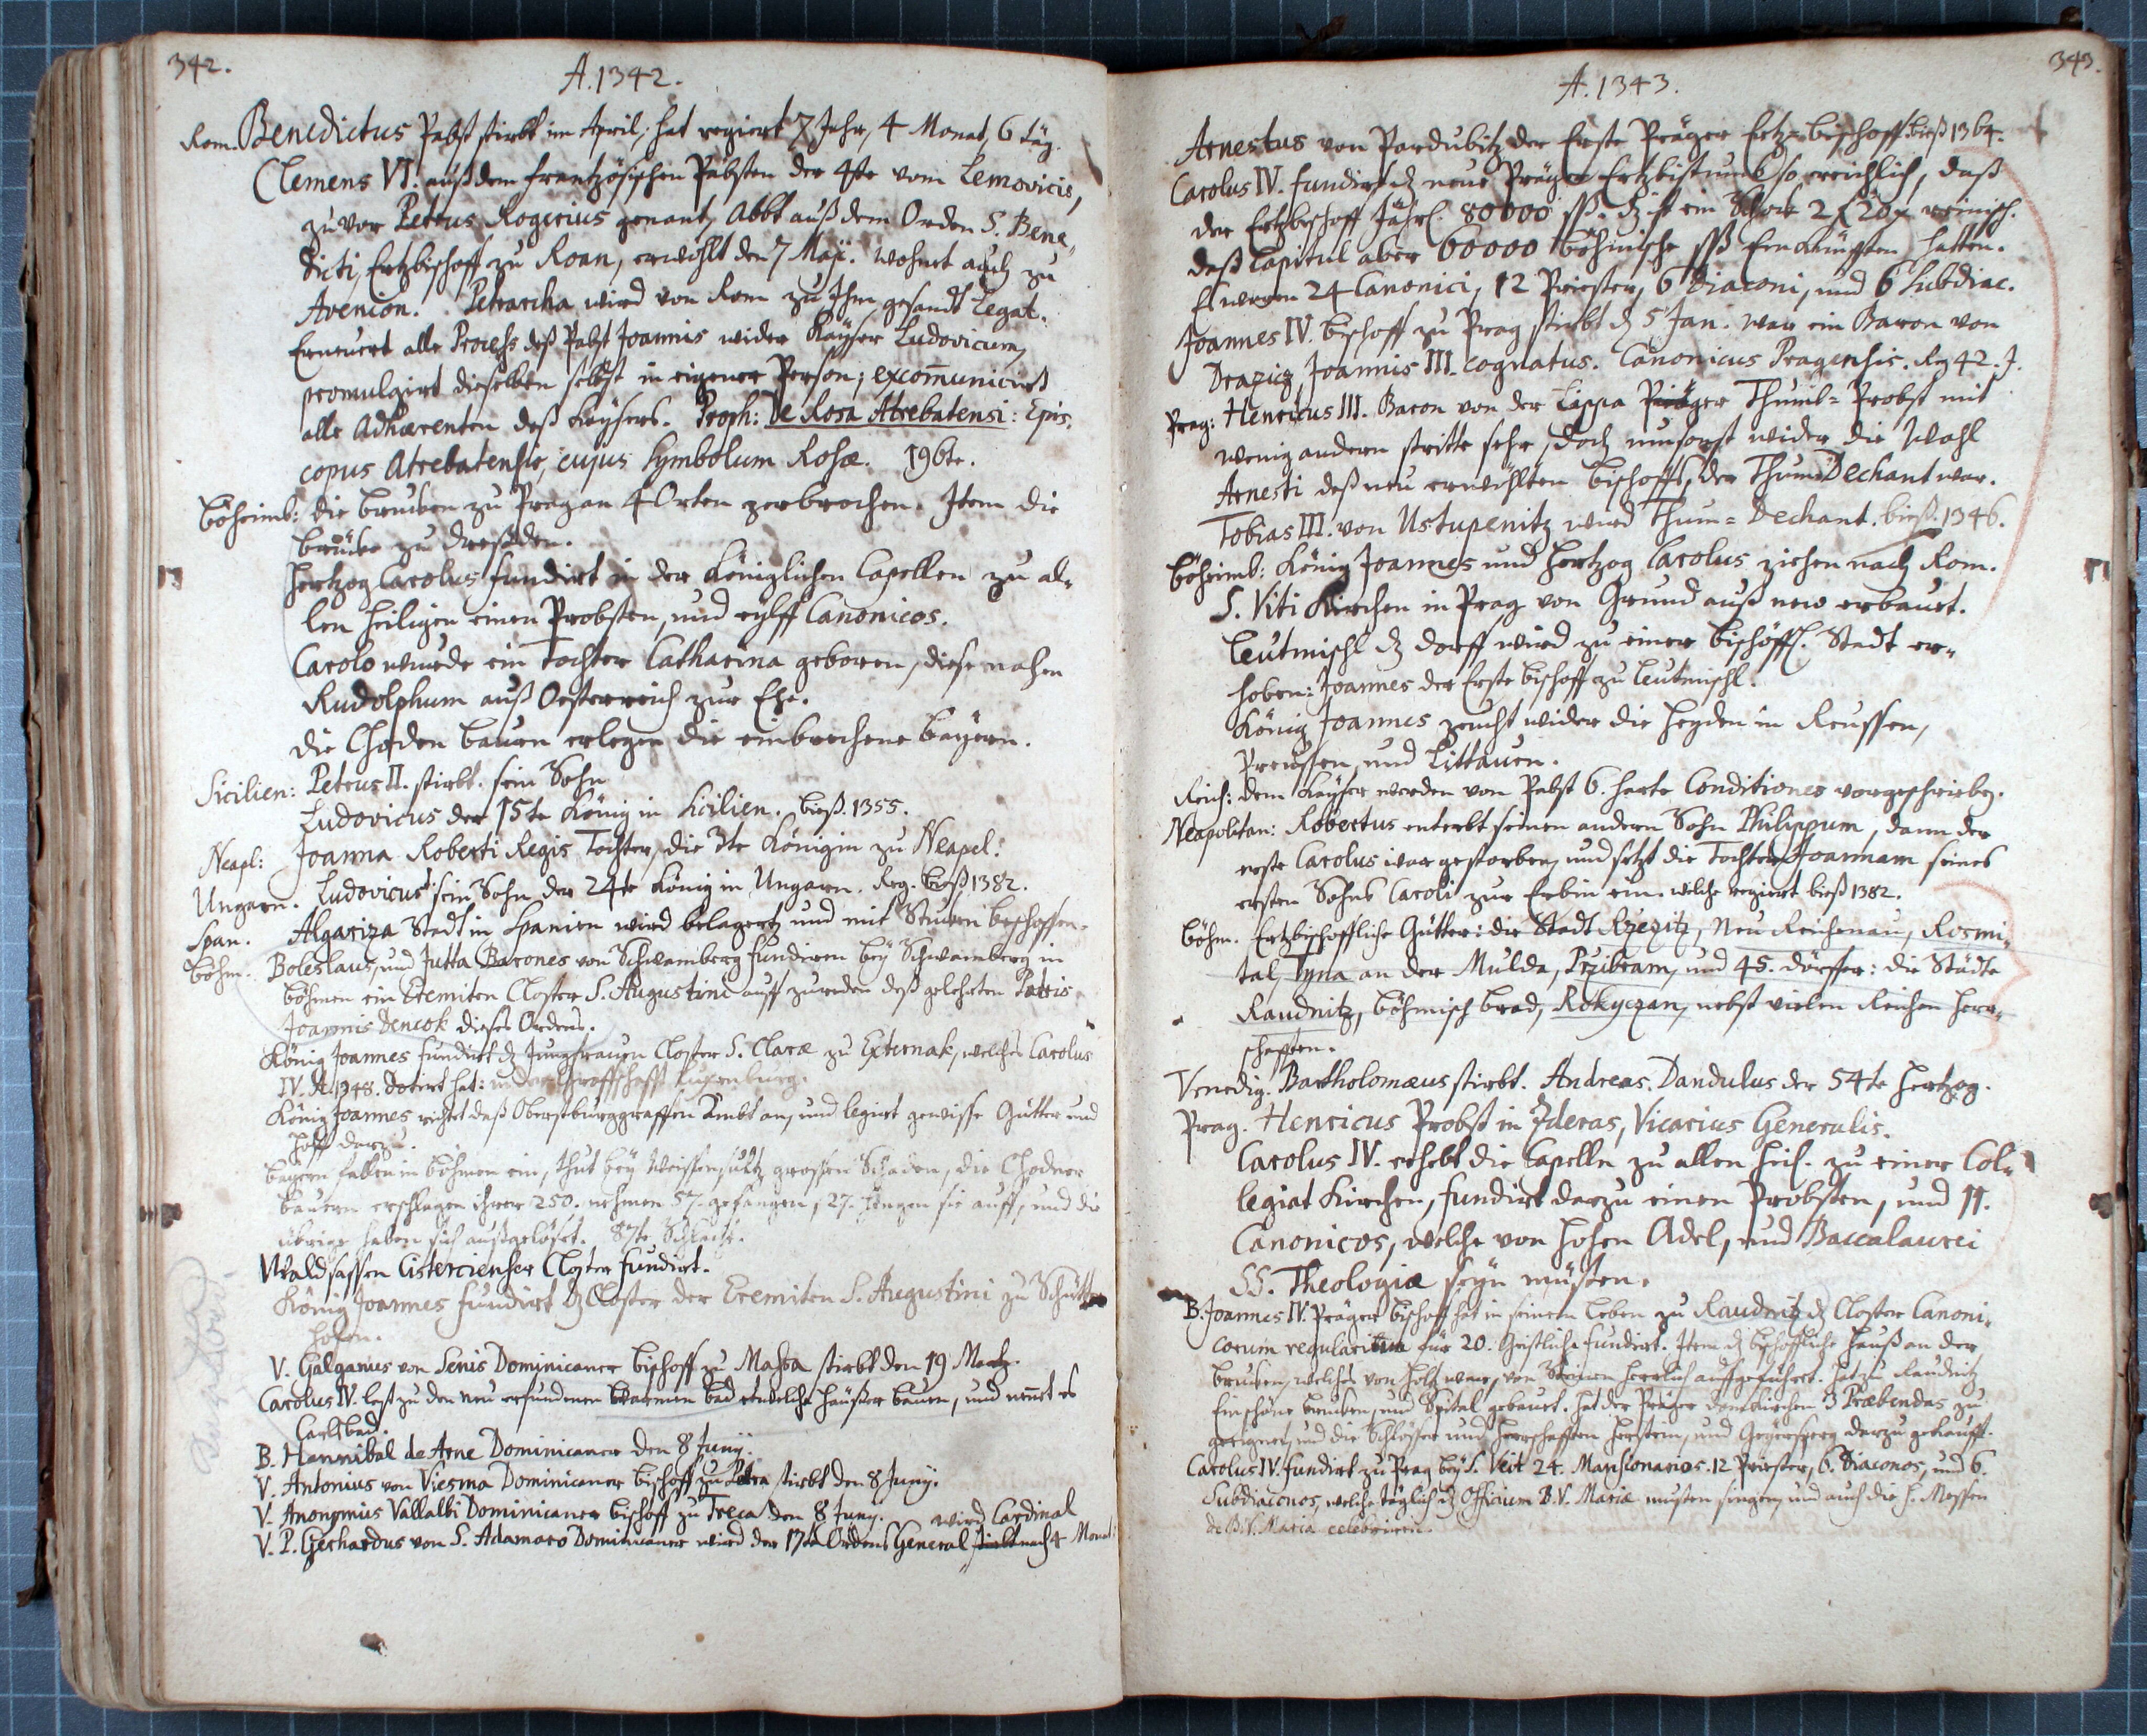 342.
A. 1342.
Rom. Benedictus Pabst stirbt im April, hat regiert 7 Jahr, 4 Monat, 6 täg.
Clemens VI. auß dem frantzösischen Päbsten der 4te vom Lemovicis,
zuvor Petrus Rogerius genant, Abbt auß dem Orden S. Bene„
dicti, Ertzbischoff zu Roan, erwöhlt den 7 Maji. wohnet auch zu
Avenion. Petrarcha wird von Rom zu Ihm gesandt Legat.
Erneuert alle Process deß Pabst Joannis wider Kayser Ludovicum,
promulgirt dieselben selbst in eigener Person; excom̄unicirt
alle Adhærenten deß Kaysers. Proph: De Rosa Atrebatensi: Epis.
copus Atrebatensis, cujus Symbolum Rosæ. 196te.
Böheimb: die brucken zu Prag an 4 Orten zerbrochen. Item die
brücke zu Dreßden.
Hertzog Carolus fundirt in der Königlichen Capellen zu al„
len Heiligen einen Probsten, und eylff Canonicos.
Carolo wurde ein Tochter Catharina geboren, diese nahm
Rudolphum auß Oesterreich zur Ehe.
die Choden bauren erlegen die einbrechene bayern.
Sicilien: Petrus II. stirbt. sein Sohn
Ludovicus der 15te König in Sicilien. bieß. 1355.
Neapl: Joanna Roberti Regis Tochter, die 3te Königin zu Neapel.
Ungarn. Ludovicus sein Sohn der 24te König in Ungarn. Reg. bieß 1382.
Span. Algariza Stadt in Spanien wird belagert, und mit Stucken beschossen.
Böhm. Boleslaus, und Jutta Barones von Schwamberg fundiren bey Schwamberg in
böhmen ein Eremiten Closter S. Augustini auff zureden deß gelehrten Patris
Joannis Dencok dieses Ordens.
König Joannes fundirt dz Jungfrauen Closter S. Claræ zu Externak, welches Carolus
IV. A. 1348. dotirt hat: in der Graffschafft Luxenburg.
König Joannes richtet daß Oberstburggraffen Ambt an, und legirt gewisse Gütter und
Höff darzu.
bayern fallen in böhmen ein, thut bey Weissensultz grossen Schaden, die Chodner
bauern erschlagen ihrer 250. nehmen 57. gefangen, 27. hengen sie auff, und die
übrige haben sich außgelöset. 87te Schlacht.
Waldsassen Cistercienser Closter fundirt.
König Joannes fundirt dz Closter der Eremiten S. Augustini zu Schütten
hofen.
V. Galganus von Senis Dominicaner bischoff zu Massa stirbt den 19 Martz.
Carolus IV. lest zu den neu erfundenen warmen bad etwelche häußer bauen, und nennt es
Carlsbad.
B. Hannibal de Arne Dominicaner den 8 Junij.
V. Antonius von Viesma Dominicaner bischoff zu Petra stirbt den 8 Junij.
V. Anonymus Vallalbi Dominicaner bischoff zu Treca den 8 Juny. wird Cardinal
V. P. Gerhardus von S. Adamaro Dominicaner wird der 17te Ordens General stirbt nach 4 Monat
343.
A. 1343.
Arnestus von Pardubitz der Erste Präger Ertz-bischoff. bieß 1364.
Carolus IV. fundirt dz neue Präger Ertzbistumb so reichlich, daß
der Ertzbischoff Jährl. 80000 ßß. dz ist ein Schock 2 f 20 x reinisch.
daß Capitul aber 60000 böhmische ßß Einkünfften hatten.
Es waren 24 Canonici, 12 Priester, 6 Diaconi, und 6 Subdiac.
Joannes IV. bischoff zu Prag stirbt dz 5 Jan. war ein Baron von
Drazicz, Joannis III. cognatus. Canonicus Pragensis. Reg 42. J.
Prag: Henricus III. Baron von der Lippa Präger Thumb-Probst mit
wenig andern stritte sehr, doch umsonst wider die Wahl
Arnesti deß neu erwöhlten bischoffs, der Thum Dechant war.
Tobias III. von Ustupenitz wurd Thum-Dechant. bieß. 1346.
Böheimb: König Joannes und Hertzog Carolus ziehen nach Rom.
S. Viti Kirchen in Prag von Grund auß new erbauet.
Leutmischl dz dorff wird zu einer bischöffl. Stadt er„
hoben: Joannes der Erste bischoff zu Leutmischl.
König Joannes zeucht wider die Heyden in Reussen,
Preussen, und Littauen.
Reich: dem Kayser werden vom Pabst 6. harte Conditiones vorgeschrieben.
Neapolitan: Robertus enterbt seinen andern Sohn Philippum, dann der
erste Carolus war gestorben, und setzt die Tochter Joannam seines
ersten Sohns Caroli zur Erbin ein. welche regiert bieß 1382.
Böhm. Ertzbischoffliche Gütter: die Stadt Rzezitz, Neu Reichenau, Rosmi„
tal, Tyna an der Mulda, Przibram, und 45. dörffer: die Städte
Raudnitz, böhmisch brod, Rokyczan, nebst vielen Reichen Herr„
schafften.
Venedig. Bartholomæus stirbt. Andreas Dandulus der 54te Hertzog.
Prag. Henricus Probst in Zderas, Vicarius Generalis.
Carolus IV. erhebt die Capelle zu allen Heil. zu einer Col„
legiat Kirchen, fundirt darzu einen Probsten, und 11.
Canonicos, welche von hohen Adel, und Baccalaurei
SS. Theologiæ seyn müsten.
B. Joannes IV. Präger bischoff hat in seinem Leben zu Raudnitz dz Closter Canoni„
corum regularium für 20. Geistliche fundirt. Item dz bischoffliche Hauß an der
brucken, welches von Holtz war, von Steinen herrlich auffgeführet. hat zu Raudnitz
Ein schöne brucken, und Spital gebauet. hat der Präger domkirchen 3 Præbendas zu
geeignet, und die Schlösser und Herrschafften Herstein, und Geyersperg darzu gekaufft.
Carolus IV. fundirt zu Prag bey S. Veit 24. Mansionarios. 12 Priester, 6. Diaconos, und 6.
Subdiaconos, welche täglich dz Officium B. V. Mariæ musten singen, und auch die H. Messen
de B. V. Maria celebriren.